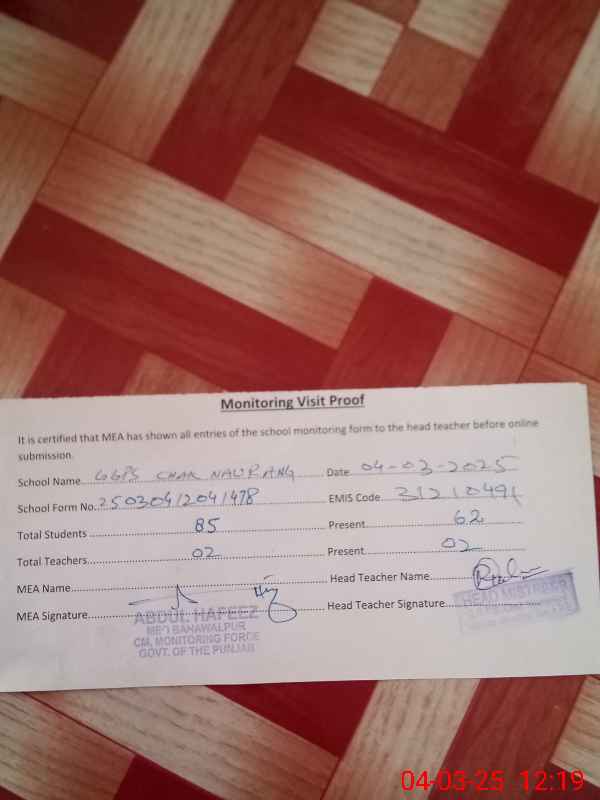 Monitoring Visit Proof
It is certified that MEA has shown all entries of the school monitoring form to the head teacher before online
submission.
School Name. GGPS CHAK NAURANG Date 04-03-2025
School Form No. 25030412041478 EMIS Code 31210491
Total Students 85 Present 62
Total Teachers 02 Present 02
MEA Name Head Teacher Name
MEA Signature Head Teacher Signature
ABDUL HAFEEZ
MEO BAHAWALPUR
CM, MONITORING FORCE
GOVT. OF THE PUNJAB
HEAD MISTRESS
04-03-25 12:19